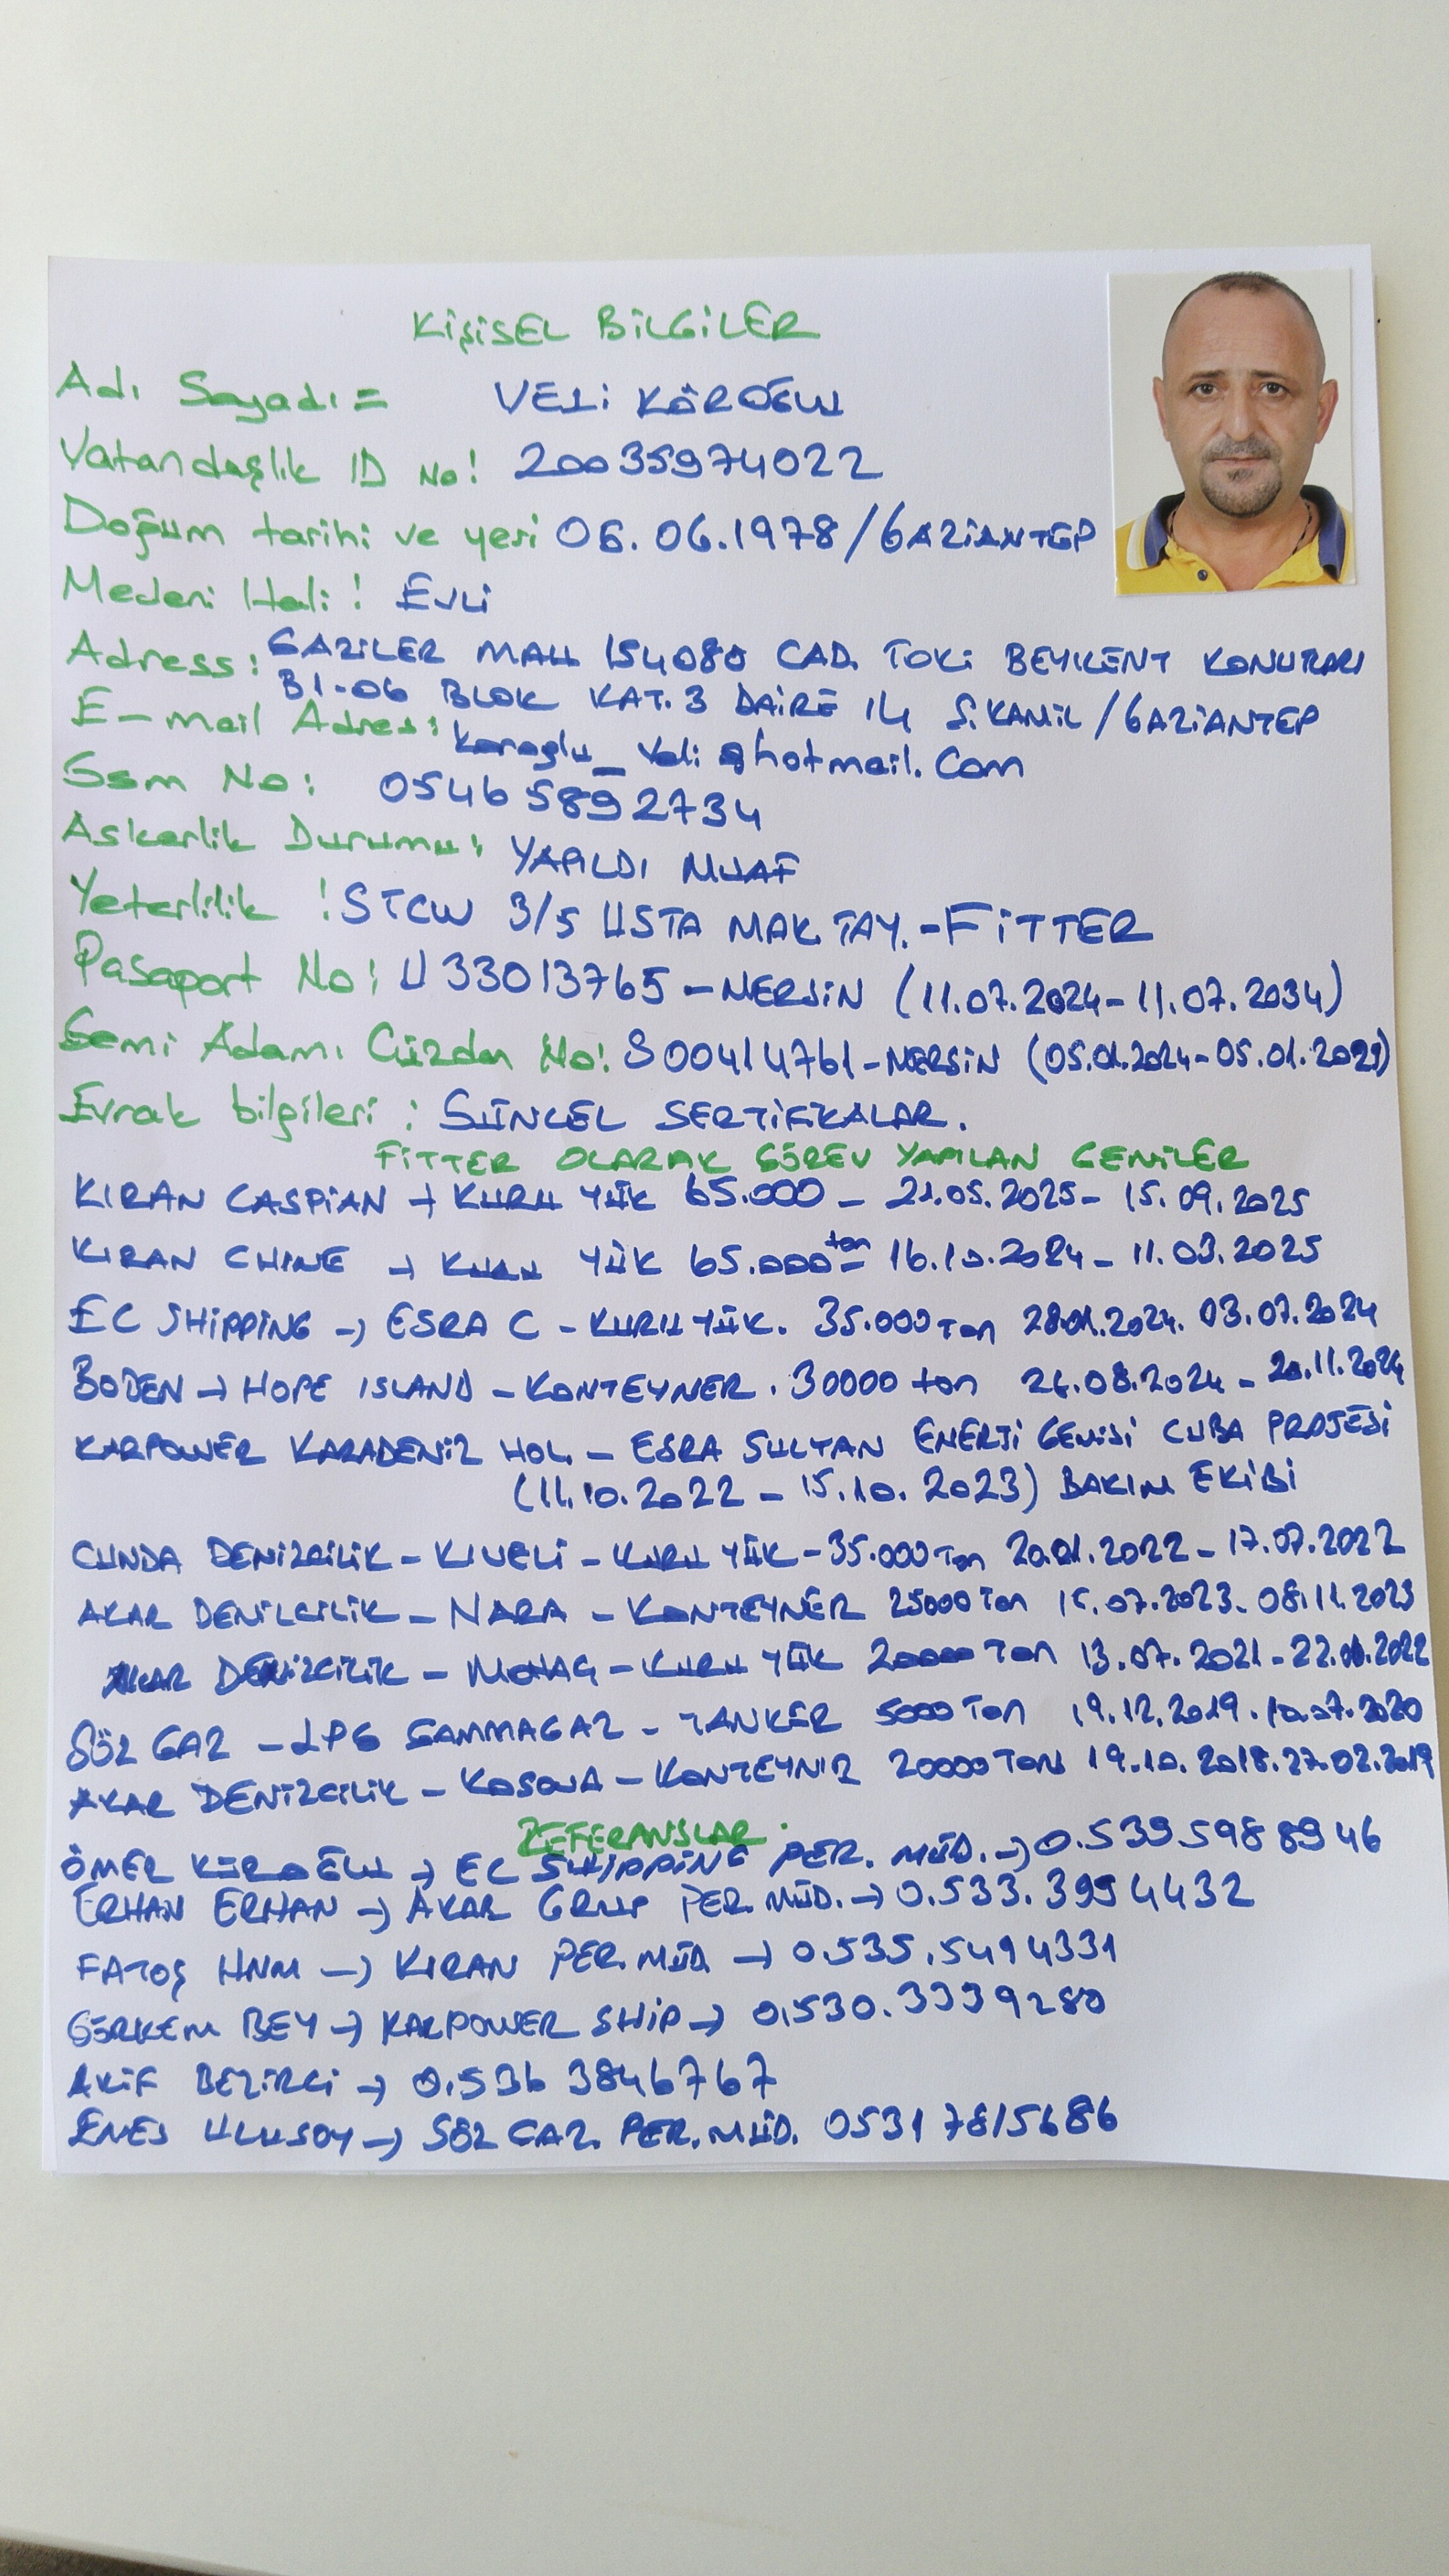 KİŞİSEL BİLGİLER
Adı Soyadı = VELİ KÖROĞLU
Vatandaşlık ID No: 20035974022
Doğum tarihi ve yeri 06.06.1978/GAZİANTEP
Medeni Hali: EVLİ
Adress: GAZİLER MAH 154080 CAD. TOKİ BEYKENT KONUTLARI
B1-06 BLOK KAT.3 DAİRE 14 Ş.KAMİL/GAZİANTEP
E-mail Adresi: koroglu_veli@hotmail.com
Gsm No: 0546 5892734
Askerlik Durumu: YAPILDI MUAF
Yeterlilik : STCW 3/5 USTA MAK.TAY.-FİTTER
Pasaport No: U33013765-MERSİN (11.07.2024-11.07.2034)
Gemi Adamı Cüzdan No: S00414761-MERSİN (05.01.2024-05.01.2029)
Evrak bilgileri : GÜNCEL SERTİFİKALAR.
FİTTER OLARAK GÖREV YAPILAN GEMİLER
KIRAN CASPİAN → KURU YÜK 65.000 - 21.05.2025- 15.09.2025
KIRAN CHINE → KURU YÜK 65.000 ton - 16.10.2024- 11.03.2025
EC SHİPPİNG → ESRA C - KURU YÜK. 35.000 Ton 28.01.2024. 03.07.2024
BODEN → HOPE ISLAND - KONTEYNER. 30000 ton 26.08.2024- 20.11.2024
KARPOWER KARADENİZ HOL. - ESRA SULTAN ENERJİ GEMİSİ CUBA PROJESİ
(11.10.2022 - 15.10.2023) BAKIM EKİBİ
CUNDA DENİZCİLİK - KIVELİ - KURU YÜK - 35.000 Ton 20.01.2022- 17.07.2022
AKAR DENİLCİLİK - NARA - KONTEYNER 25000 Ton 15.07.2023- 08.11.2023
AKAR DENİZCİLİK - - KURU YÜK 20000 Ton 13.07.2021-
SÖZ GAZ - LPG GAMMAGAZ - TANKER 5000 Ton 19.12.2019. 10.07.2020
AKAR DENİZCİLİK - KOSOVA - KONTEYNIR 20000 TON 19.10.2018. 27.02.2019
REFERANSLAR.
ÖMER KÖROĞLU → EC SHİPPİNG PER. MÜD. → 0.539.598 8946
ERHAN ERHAN → AKAR GRUP PER.MÜD. → 0.533.3994432
FATOŞ HNM → KIRAN PER.MÜD. → 0.535.5494331
GÖRKEM BEY → KARPOWER SHİP → 0.530.3339280
AKİF BEZİRCİ → 0.536 3846767
ENES ULUSOY → SÖZ GAZ. PER.MÜD. 0531 7815686